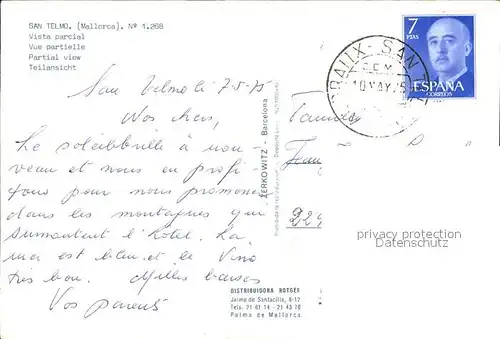 SAN TELMO. (Mallorca). Nº 1.268
Vista parcial
Vue partielle
Partial view
Teilansicht
San Telmo le 7.5.75
Nos chers,
Le soleil brille à nou-
veau et nous en profi-
tons pour nous promener
dans les montagnes qui
surmontent l'hotel. La
mer est bleu et le vino
très bon. Milles baisers
Vos parents
ZERKOWITZ - Barcelona
7
PTAS
ESPAÑA
CORREOS
10 MAY 75
privacy protection
Datenschutz
DISTRIBUIDORA ROTGER
Jaime de Santacilia, 8-12
Tels. 21 61 14 - 21 43 70
Palma de Mallorca